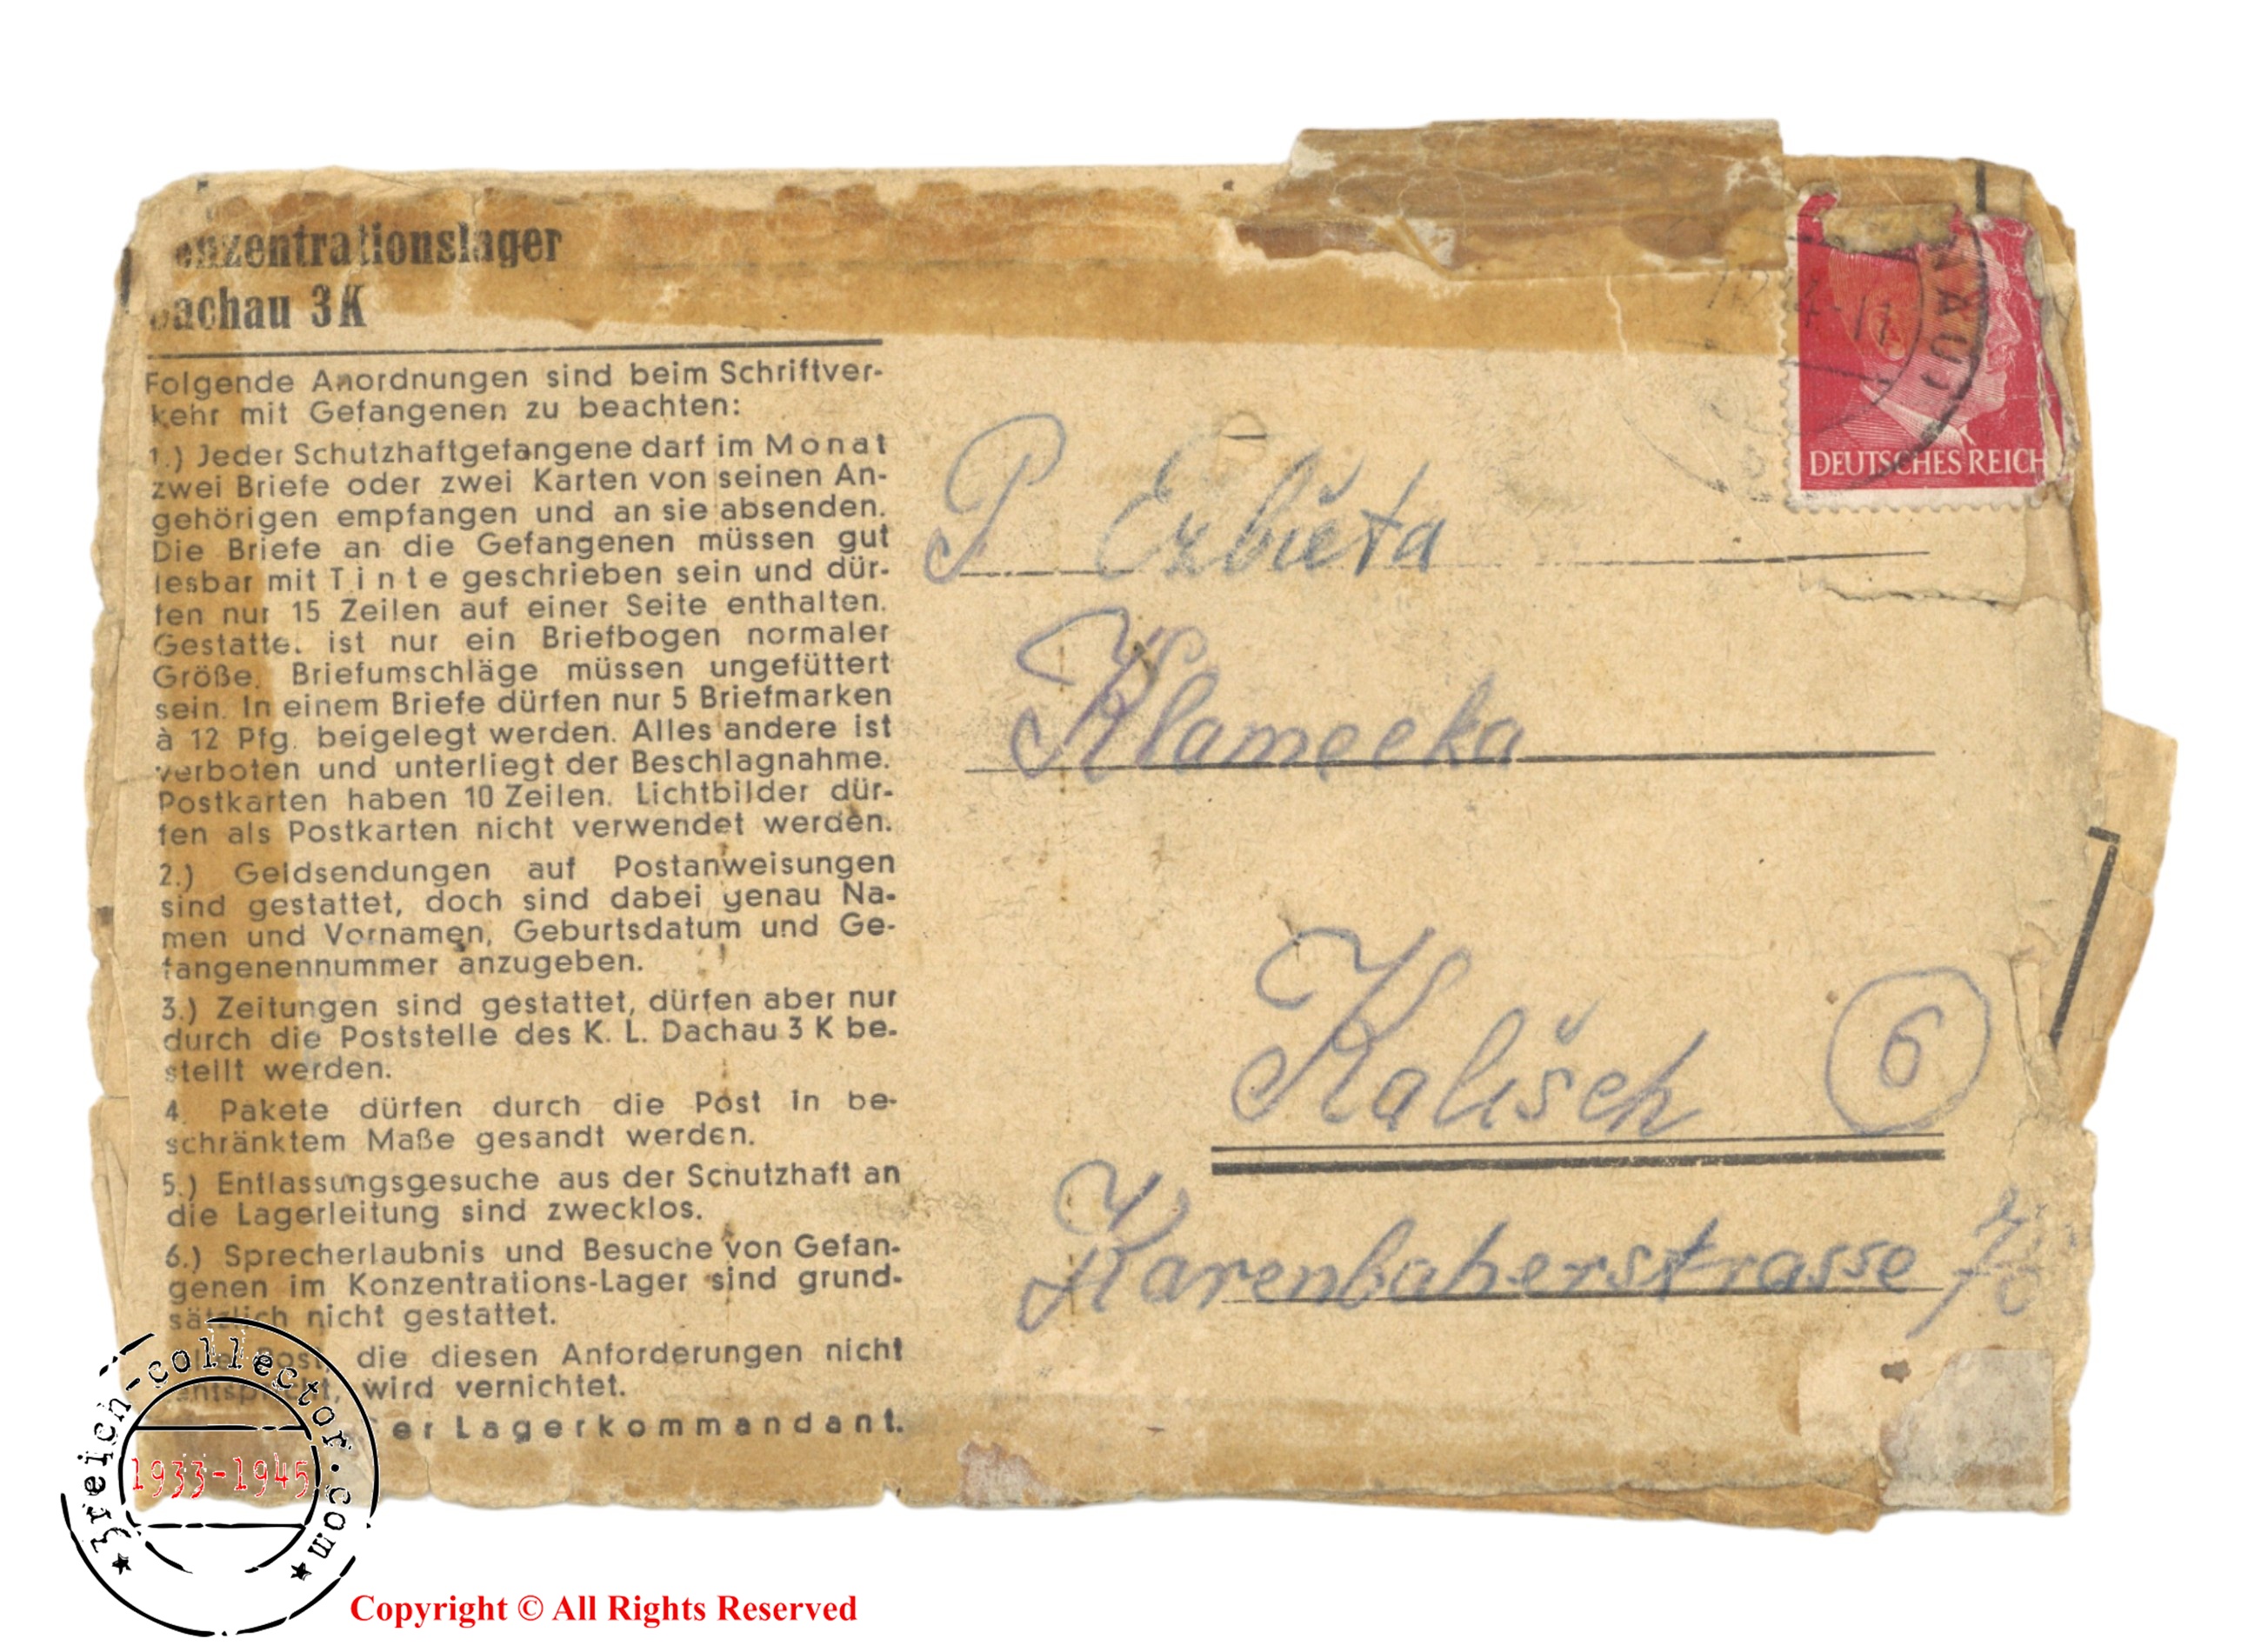 Konzentrationslager
Dachau 3 K
Folgende Anordnungen sind beim Schriftver-
kehr mit Gefangenen zu beachten:
1.) Jeder Schutzhaftgefangene darf im Monat
zwei Briefe oder zwei Karten von seinen An-
gehörigen empfangen und an sie absenden.
Die Briefe an die Gefangenen müssen gut
lesbar mit Tinte geschrieben sein und dür-
fen nur 15 Zeilen auf einer Seite enthalten.
Gestattet ist nur ein Briefbogen normaler
Größe. Briefumschläge müssen ungefüttert
sein. In einem Briefe dürfen nur 5 Briefmarken
à 12 Pfg. beigelegt werden. Alles andere ist
verboten und unterliegt der Beschlagnahme.
Postkarten haben 10 Zeilen. Lichtbilder dür-
fen als Postkarten nicht verwendet werden.
2.) Geldsendungen auf Postanweisungen
sind gestattet, doch sind dabei genau Na-
men und Vornamen, Geburtsdatum und Ge-
fangenennummer anzugeben.
3.) Zeitungen sind gestattet, dürfen aber nur
durch die Poststelle des K. L. Dachau 3 K be-
stellt werden.
4. Pakete dürfen durch die Post in be-
schränktem Maße gesandt werden.
5.) Entlassungsgesuche aus der Schutzhaft an
die Lagerleitung sind zwecklos.
6.) Sprecherlaubnis und Besuche von Gefan-
genen im Konzentrations-Lager sind grund-
sätzlich nicht gestattet.
Post, die diesen Anforderungen nicht
entspricht, wird vernichtet.
Der Lagerkommandant.
DEUTSCHES REICH
P Ezbieta
Klamecka
Kalisch 6
Karenbaherstrasse
3reich-collector.com
1933-1945
Copyright © All Rights Reserved